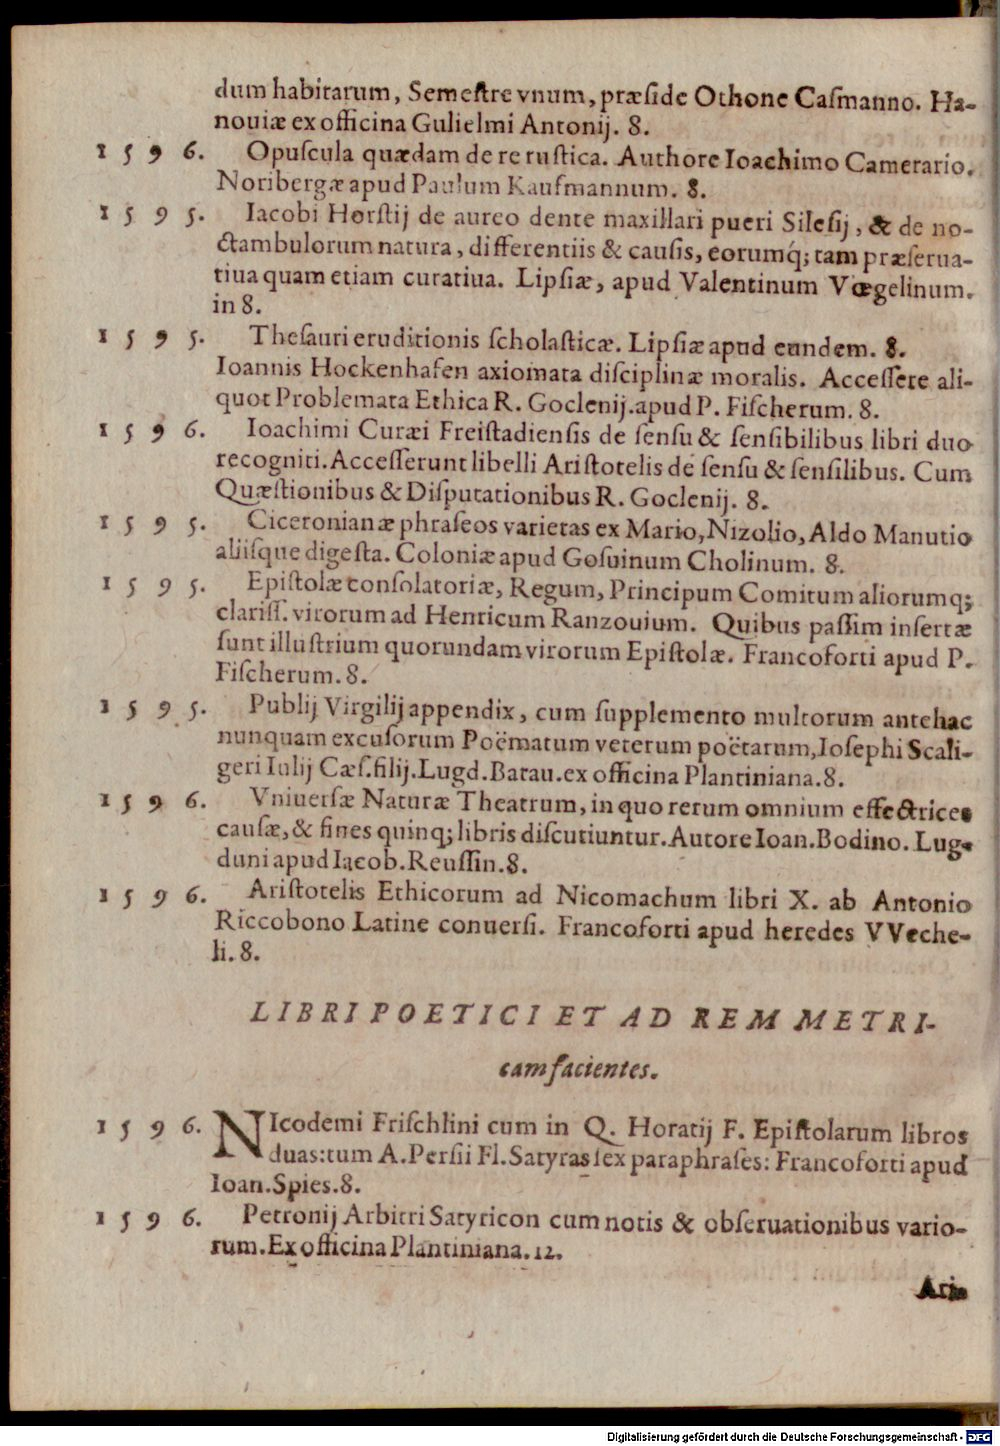 dum habitarum, Semeſtre vnum, præſide Othone Caſmanno. Ha-
nouiæ ex officina Gulielmi Antonij. 8.
1 5 9 6. Opuſcula quædam de re ruſtica. Authore Ioachimo Camerario.
Noribergæ apud Paulum Kaufmannum. 8.
1 5 9 5. Iacobi Horſtij de aureo dente maxillari pueri Sileſij, & de no-
ctambulorum natura, differentiis & cauſis, eorumq́; tam præſerua-
tiua quam etiam curatiua. Lipſiæ, apud Valentinum Vœgelinum.
in 8.
1 5 9 5. Theſauri eruditionis ſcholaſticæ. Lipſiæ apud eundem. 8.
Ioannis Hockenhafen axiomata diſciplinæ moralis. Acceſſere ali-
quot Problemata Ethica R. Goclenij. apud P. Fiſcherum. 8.
1 5 9 6. Ioachimi Curæi Freiſtadienſis de ſenſu & ſenſibilibus libri duo
recogniti. Acceſſerunt libelli Ariſtotelis de ſenſu & ſenſilibus. Cum
Quæſtionibus & Diſputationibus R. Goclenij. 8.
1 5 9 5. Ciceronianæ phraſeos varietas ex Mario, Nizolio, Aldo Manutio
aliiſque digeſta. Coloniæ apud Goſuinum Cholinum. 8.
1 5 9 5. Epiſtolæ conſolatoriæ, Regum, Principum Comitum aliorumq;
clariſſ. virorum ad Henricum Ranzouium. Quibus paſſim inſertæ
ſunt illuſtrium quorundam virorum Epiſtolæ. Francoforti apud P.
Fiſcherum. 8.
1 5 9 5. Publij Virgilij appendix, cum ſupplemento multorum antehac
nunquam excuſorum Poëmatum veterum poëtarum, Ioſephi Scali-
geri Iulij Cæſ. filij. Lugd. Batau. ex officina Plantiniana. 8.
1 5 9 6. Vniuerſæ Naturæ Theatrum, in quo rerum omnium effectrices
cauſæ, & fines quinq; libris diſcutiuntur. Autore Ioan. Bodino. Lug-
duni apud Iacob. Reuſſin. 8.
1 5 9 6. Ariſtotelis Ethicorum ad Nicomachum libri X. ab Antonio
Riccobono Latine conuerſi. Francoforti apud heredes VVeche-
li. 8.
LIBRI POETICI ET AD REM METRI-
cam facientes.
1 5 9 6. NIcodemi Friſchlini cum in Q. Horatij F. Epiſtolarum libros
duas: tum A. Perſii Fl. Satyras ſex paraphraſes: Francoforti apud
Ioan. Spies. 8.
1 5 9 6. Petronij Arbitri Satyricon cum notis & obſeruationibus vario-
rum. Ex officina Plantiniana. 12.
Aria
Digitalisierung gefördert durch die Deutsche Forschungsgemeinschaft - DFG